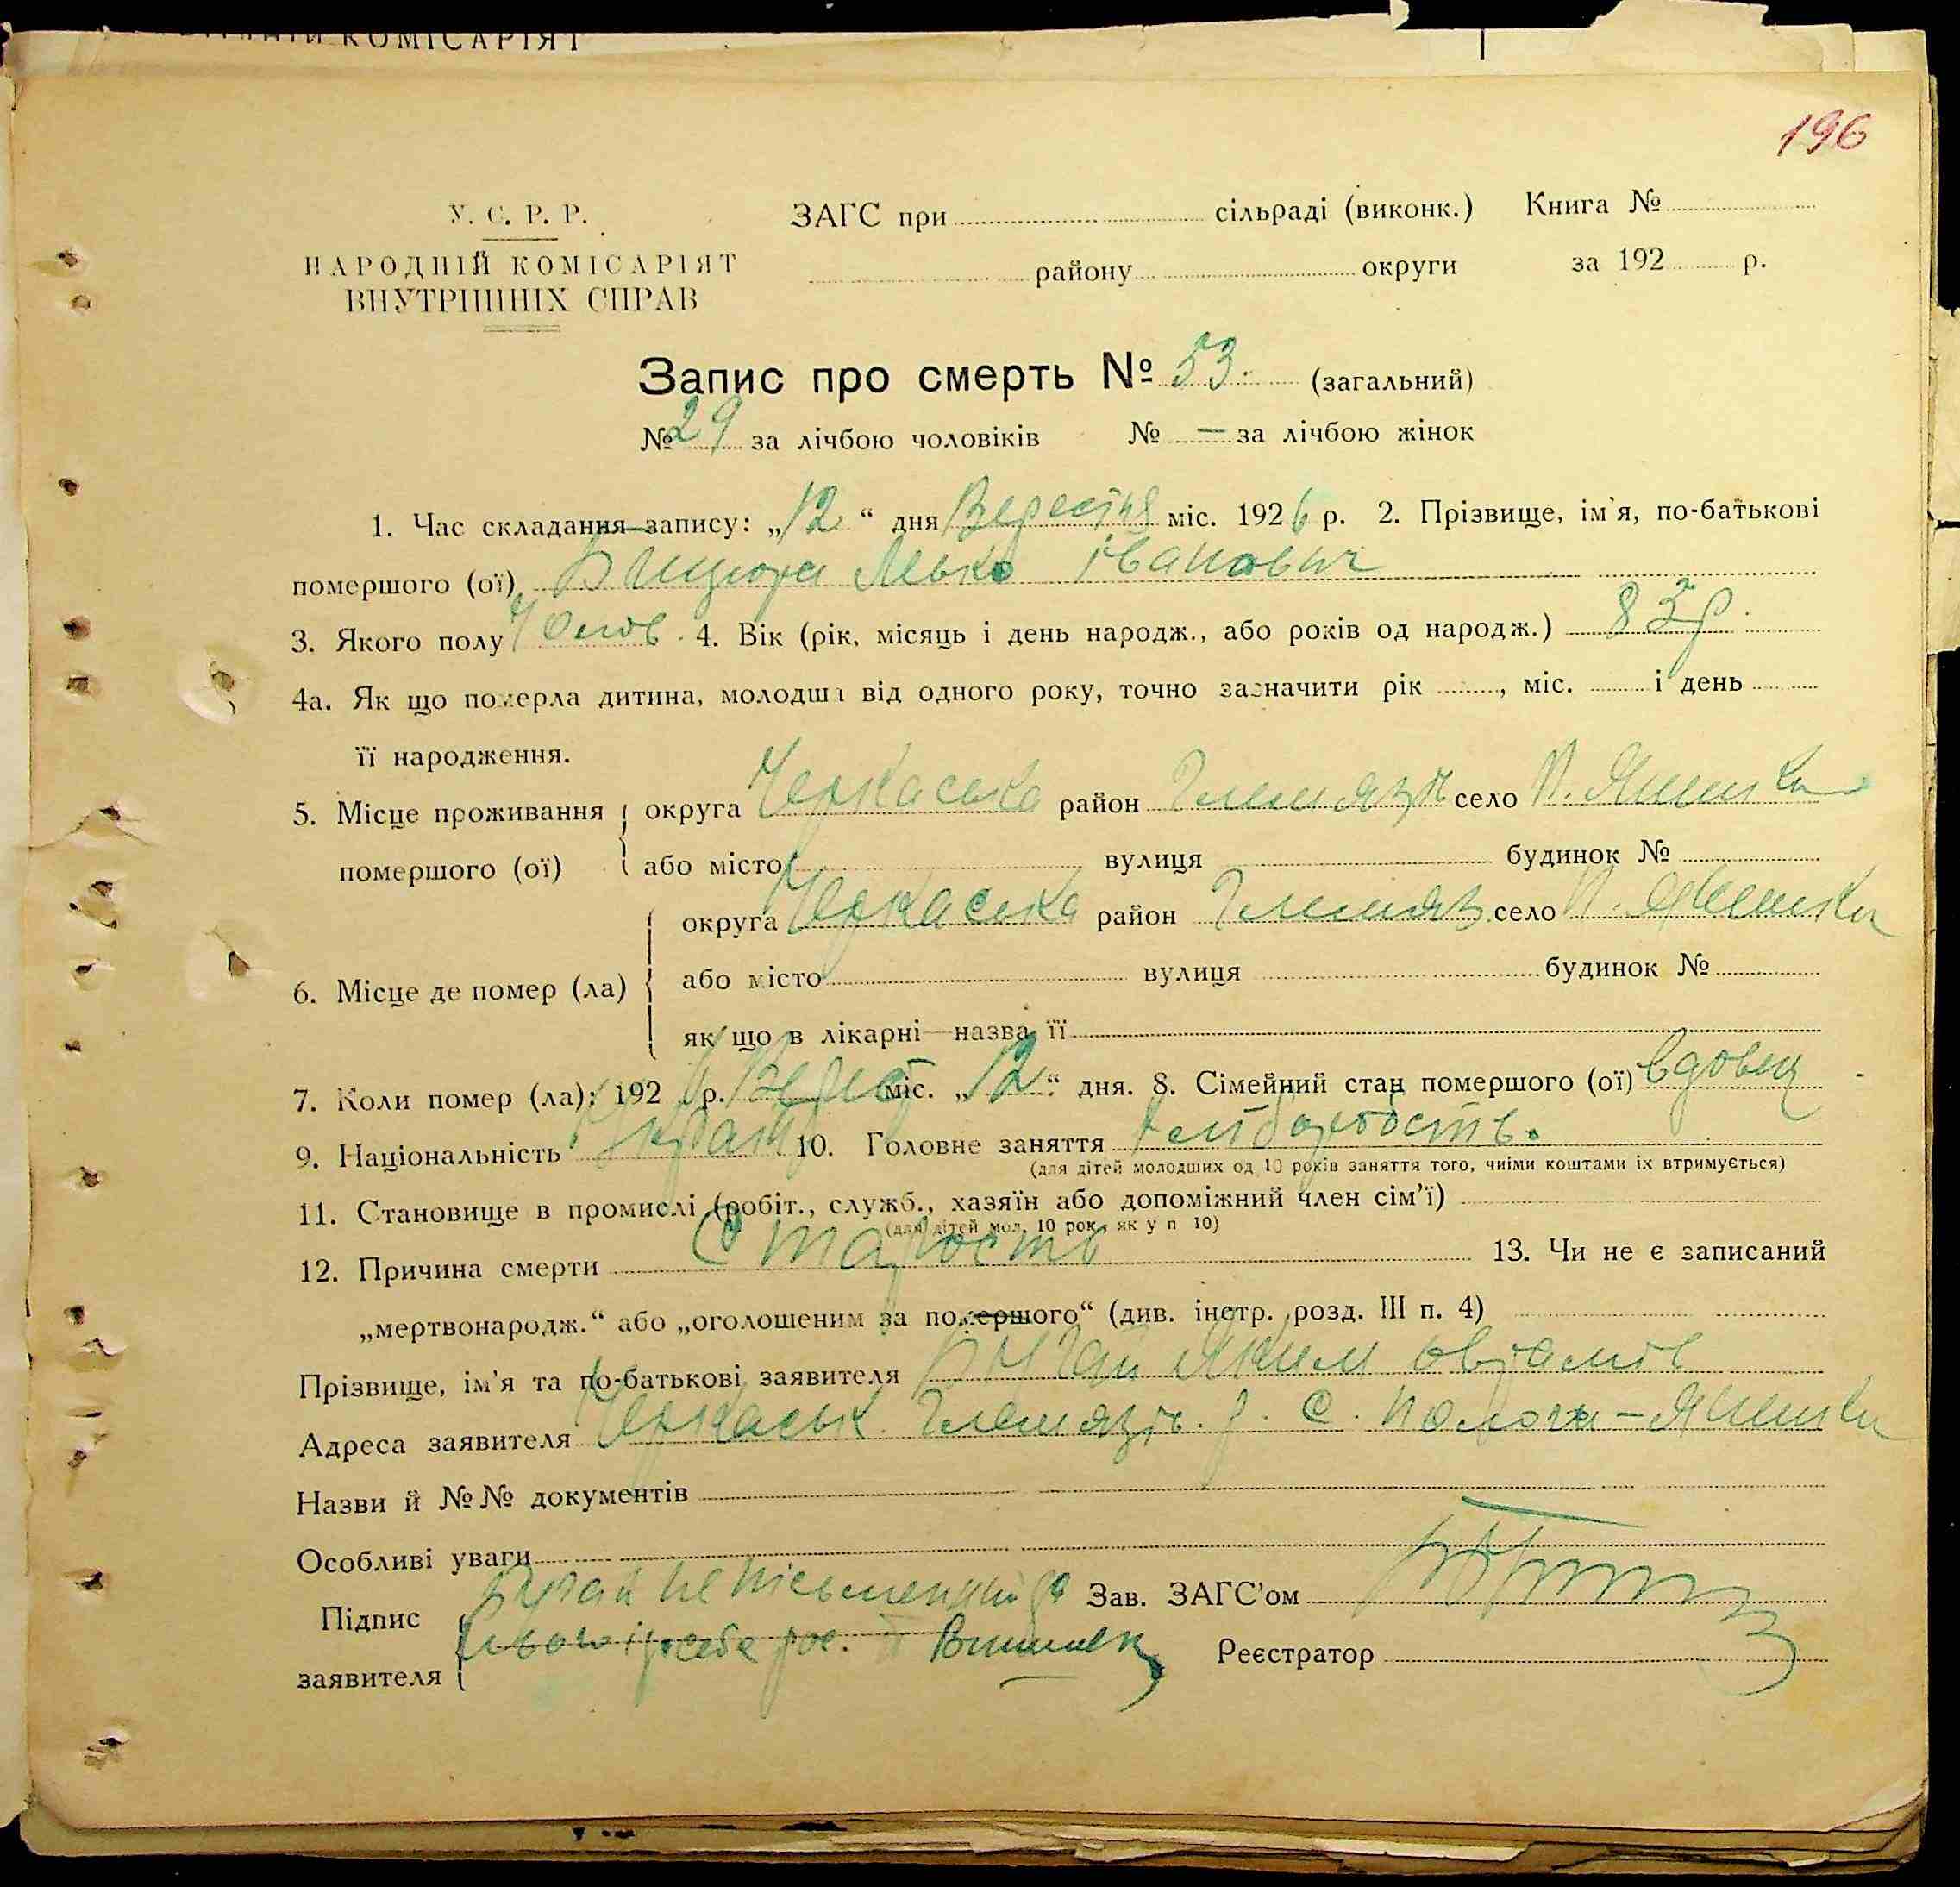 КОМІСАРІЯТ
196
У. С. Р. Р.
НАРОДНІЙ КОМІСАРІЯТ
ВНУТРІШНІХ СПРАВ
ЗАГС при сільраді (виконк.) Книга №
району округи за 192 р.
Запис про смерть № 53. (загальний)
№ 29 за лічбою чоловіків № — за лічбою жінок
1. Час складання запису: „12“ дня Вересня міс. 1926 р. 2. Прізвище, ім'я, по-батькові
помершого (ої) Левко Іванович
3. Якого полу Чолов. 4. Вік (рік, місяць і день народж., або років од народж.) 83 р.
4а. Як що померла дитина, молодша від одного року, точно зазначити рік , міс. і день
її народження.
5. Місце проживання округа Черкаська район Гельмязів село П. Яненки
помершого (ої) або місто вулиця будинок №
округа Черкаська район Гельмяз. село П. Яненки
6. Місце де помер (ла) або місто вулиця будинок №
як що в лікарні—назва її
7. Коли помер (ла): 1926 р. Верес міс. „12“ дня. 8. Сімейний стан помершого (ої) вдовец
9. Національність Украін 10. Головне заняття хліборобств.
(для дітей молодших од 10 років заняття того, чиїми коштами їх втримується)
11. Становище в промислі (робіт., служб., хазяїн або допоміжний член сім'ї)
(для дітей мол. 10 рок., як у п 10)
12. Причина смерти Старость 13. Чи не є записаний
„мертвонародж.“ або „оголошеним за помершого“ (див. інстр. розд. III п. 4)
Прізвище, ім'я та по-батькові заявителя Яким Аврамов
Адреса заявителя Черкаськ. Гельмязів. р. с. Попова-Яненки
Назви й №№ документів
Особливі уваги
Підпис неписьменний Зав. ЗАГС'ом
заявителя рос. Реєстратор